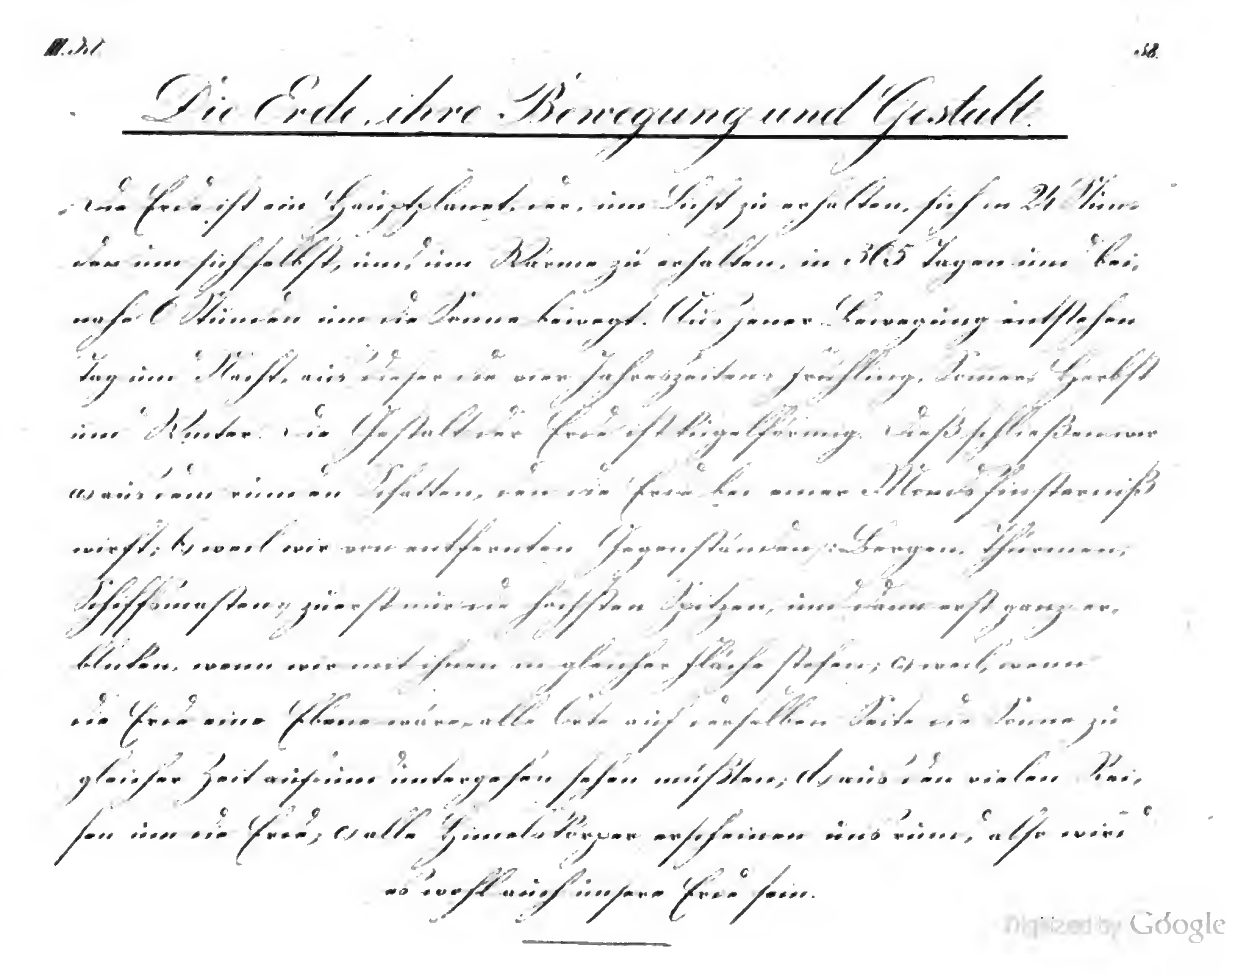 III. Tbl. 58.
Die Erde, ihre Bewegung und Gestalt.
Die Erde ist ein Hauptplanet, der, um Licht zu erhalten, sich in 24 Stun-
den um sich selbst, und um Wärme zu erhalten, in 365 Tagen und bei-
nahe 6 Stunden um die Sonne bewegt. Aus jener Bewegung entstehen
Tag und Nacht, aus dieser die vier Jahreszeiten: Frühling, Sommer, Herbst
und Winter. Die Gestalt der Erde ist kugelförmig. Dieß schließen wir
a) aus dem runden Schatten, den die Erde bei einer Mondsfinsterniß
wirft; b) weil wir von entfernten Gegenständen: Bergen, Thürmen,
Schiffsmasten zuerst nur die höchsten Spitzen, und dann erst ganz er-
blicken, wenn wir mit ihnen in gleicher Fläche stehen; c) weil, wenn
die Erde eine Ebene wäre, alle Orte auf derselben Seite die Sonne zu
gleicher Zeit auf und untergehen sehen müßten; d) aus den vielen Rei-
sen um die Erde; e) alle Himelskörper erscheinen uns rund, also wird
es wohl auch unsere Erde sein.
Digitized by Google